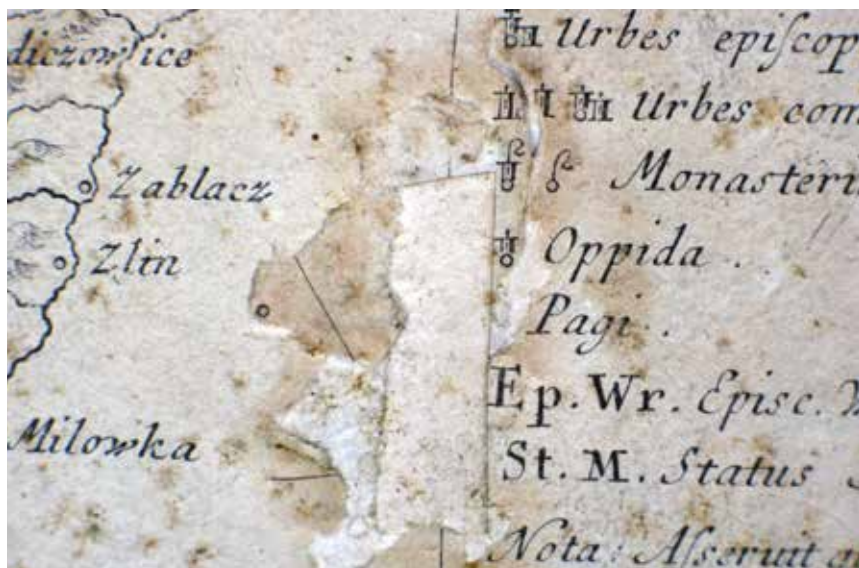 diczowice
Zablacz
Zlin
Milowka
Urbes epiſcop
Urbes com
Monasteri
Oppida .
Pagi .
Ep. Wr. Episc. W
St. M. Status
Nota: Aſseruit